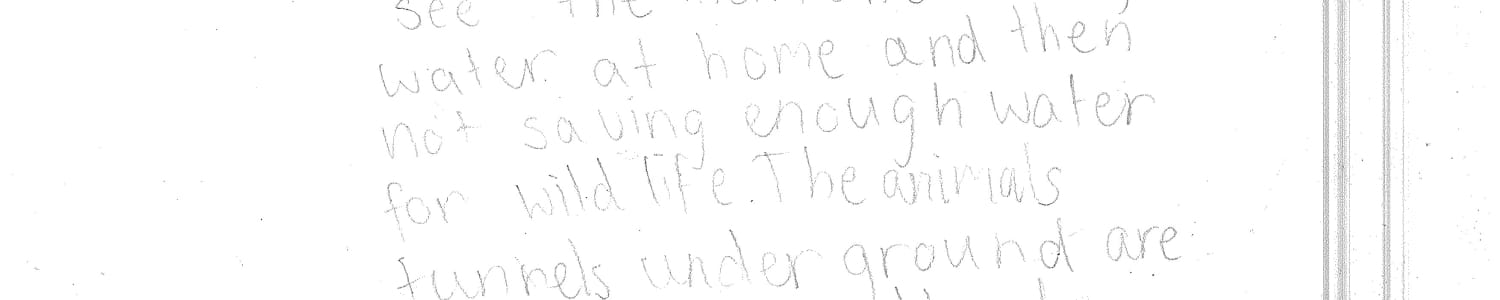 see the
water at home and then
not saving enough water
for wild life. The animals
tunnels under ground are